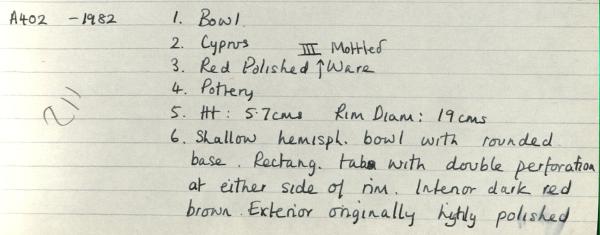 A402 - 1982 1. Bowl
2. Cyprus III Mottled
3. Red Polished ↑ Ware
4. Pottery
211
5. Ht: 5.7cms Rim Diam: 19cms
6. Shallow hemisph. bowl with rounded
base. Rectang. tabs with double perforation
at either side of rim. Interior dark red
brown. Exterior originally highly polished